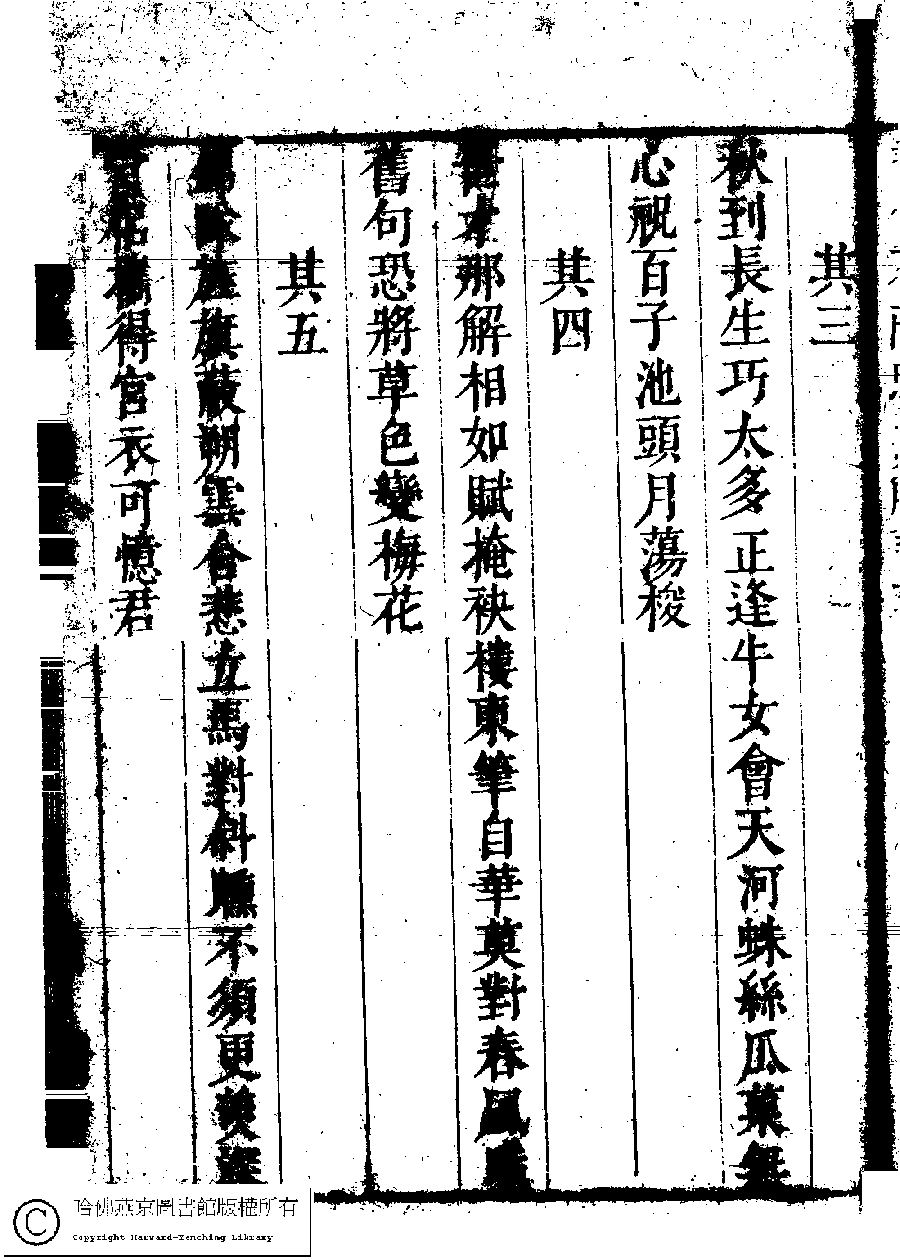 其三
秋到長生巧太多正逢牛女會天河蛛絲瓜菓無
心祝百子池頭月蕩梭
其四
才那解相如賦掩袂樓東筆自華莫對春風
舊句恐將草色變梅花
其五
旌旗蔽朔雲含悲立馬對斜曛不須更羨
得宮衣可憶君
哈佛燕京圖書館版權所有
Copyright Harvard-Yenching Library